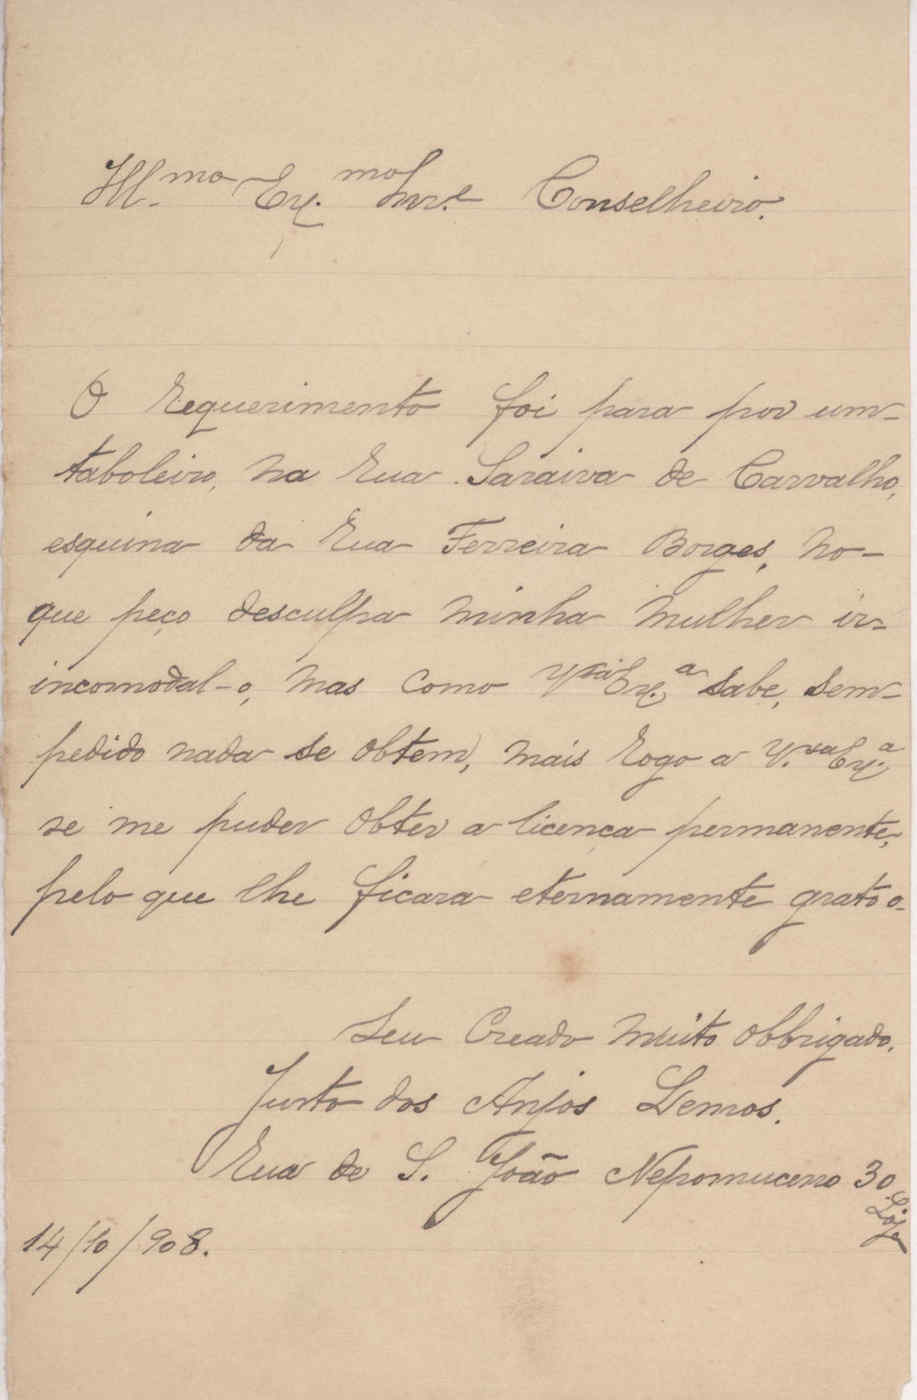 Ill.mo Ex.mo Snr.e Conselheiro.
O Requerimento foi para por um
taboleiro, na Rua Saraiva de Carvalho,
esquina da Rua Ferreira Borges, no
que peço desculpa minha mulher ir
incomodal-o, mas como V.xa Ex.a sabe, sem
pedido nada se obtem, mais Rogo a V.xa Ex.a
se me puder obter a licença permanente,
pelo que lhe ficara eternamente grato o
Seu Creado Muito Obbrigado.
Justo dos Anjos Lemos.
Rua de S. João Nepomuceno 30
Loja
14/10/908.